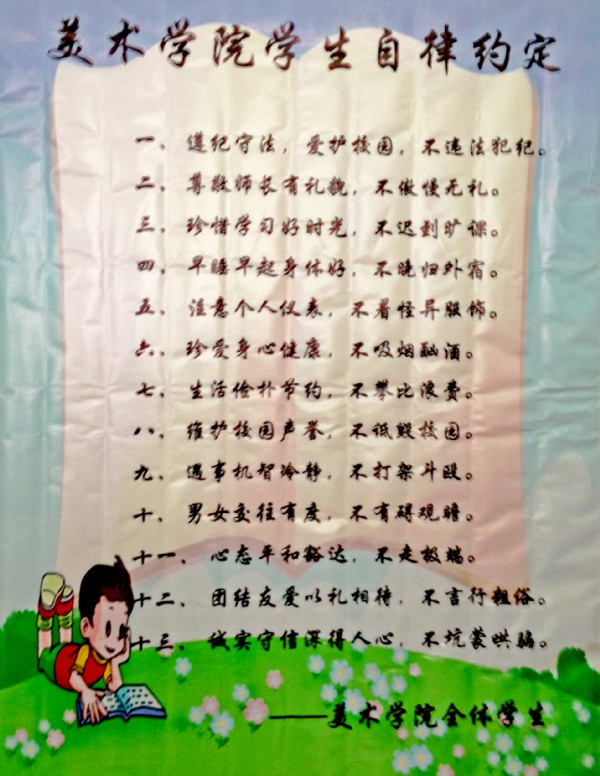 美术学院学生自律约定
一、遵纪守法，爱护校园，不违法犯纪。
二、尊敬师长有礼貌，不傲慢无礼。
三、珍惜学习好时光，不迟到旷课。
四、早睡早起身体好，不晚归外宿。
五、注意个人仪表，不着怪异服饰。
六、珍爱身心健康，不吸烟酗酒。
七、生活俭朴节约，不攀比浪费。
八、维护校园声誉，不诋毁校园。
九、遇事机智冷静，不打架斗殴。
十、男女交往有度，不有碍观瞻。
十一、心态平和豁达，不走极端。
十二、团结友爱以礼相待，不言行粗俗。
十三、诚实守信深得人心，不坑蒙哄骗。
——美术学院全体学生